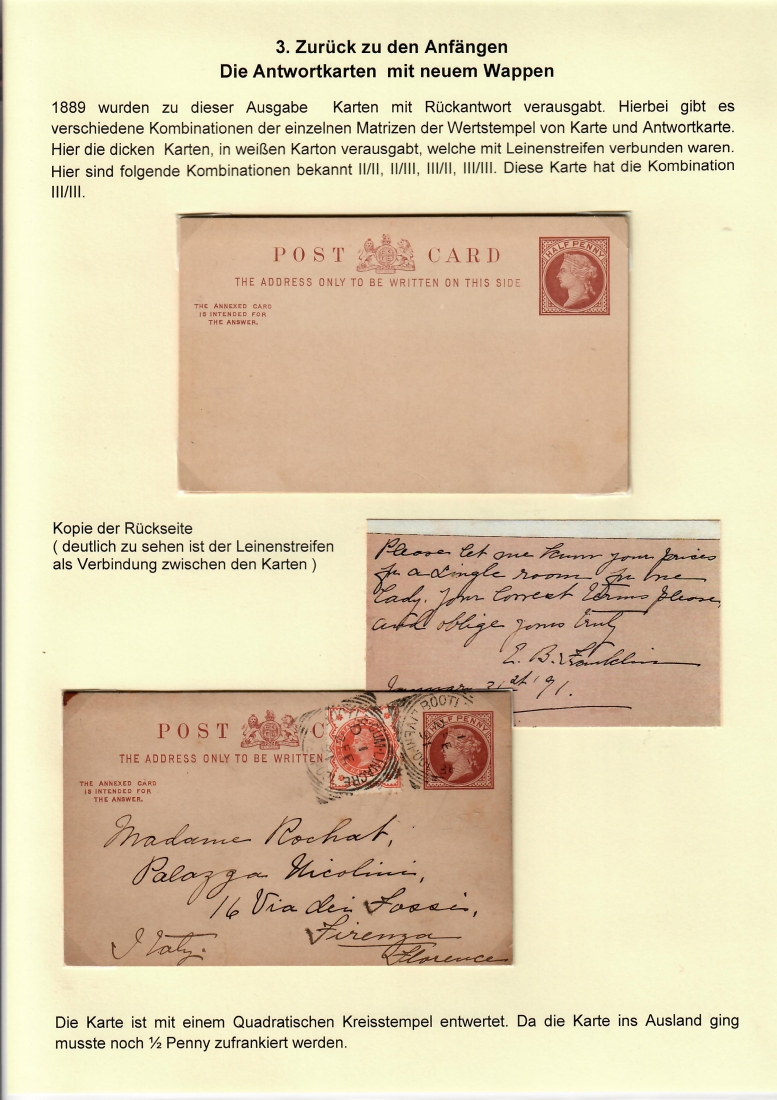 3. Zurück zu den Anfängen
Die Antwortkarten mit neuem Wappen
1889 wurden zu dieser Ausgabe Karten mit Rückantwort verausgabt. Hierbei gibt es
verschiedene Kombinationen der einzelnen Matrizen der Wertstempel von Karte und Antwortkarte.
Hier die dicken Karten, in weißen Karton verausgabt, welche mit Leinenstreifen verbunden waren.
Hier sind folgende Kombinationen bekannt II/II, II/III, III/II, III/III. Diese Karte hat die Kombination
III/III.
POST CARD
HALF PENNY
THE ADDRESS ONLY TO BE WRITTEN ON THIS SIDE
THE ANNEXED CARD
IS INTENDED FOR
THE ANSWER.
Kopie der Rückseite
( deutlich zu sehen ist der Leinenstreifen
als Verbindung zwischen den Karten )
Please let me know your prices
for a single room for one
lady. Your correct terms please,
and oblige yours truly
E. B. Franklin
21st '91.
POST C
HALF PENNY
THE ADDRESS ONLY TO BE WRITTEN
THE ANNEXED CARD
IS INTENDED FOR
THE ANSWER.
Madame Rochat,
Palazza Nicolini,
16 Via dei Fossi,
Firenza
Italy.
Florence
Die Karte ist mit einem Quadratischen Kreisstempel entwertet. Da die Karte ins Ausland ging
musste noch ½ Penny zufrankiert werden.